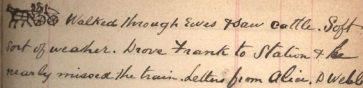 Walked through Ewes & saw cattle. Soft
sort of weather. Drove Frank to Station & he
nearly missed the train. Letters from Alice, D Webb